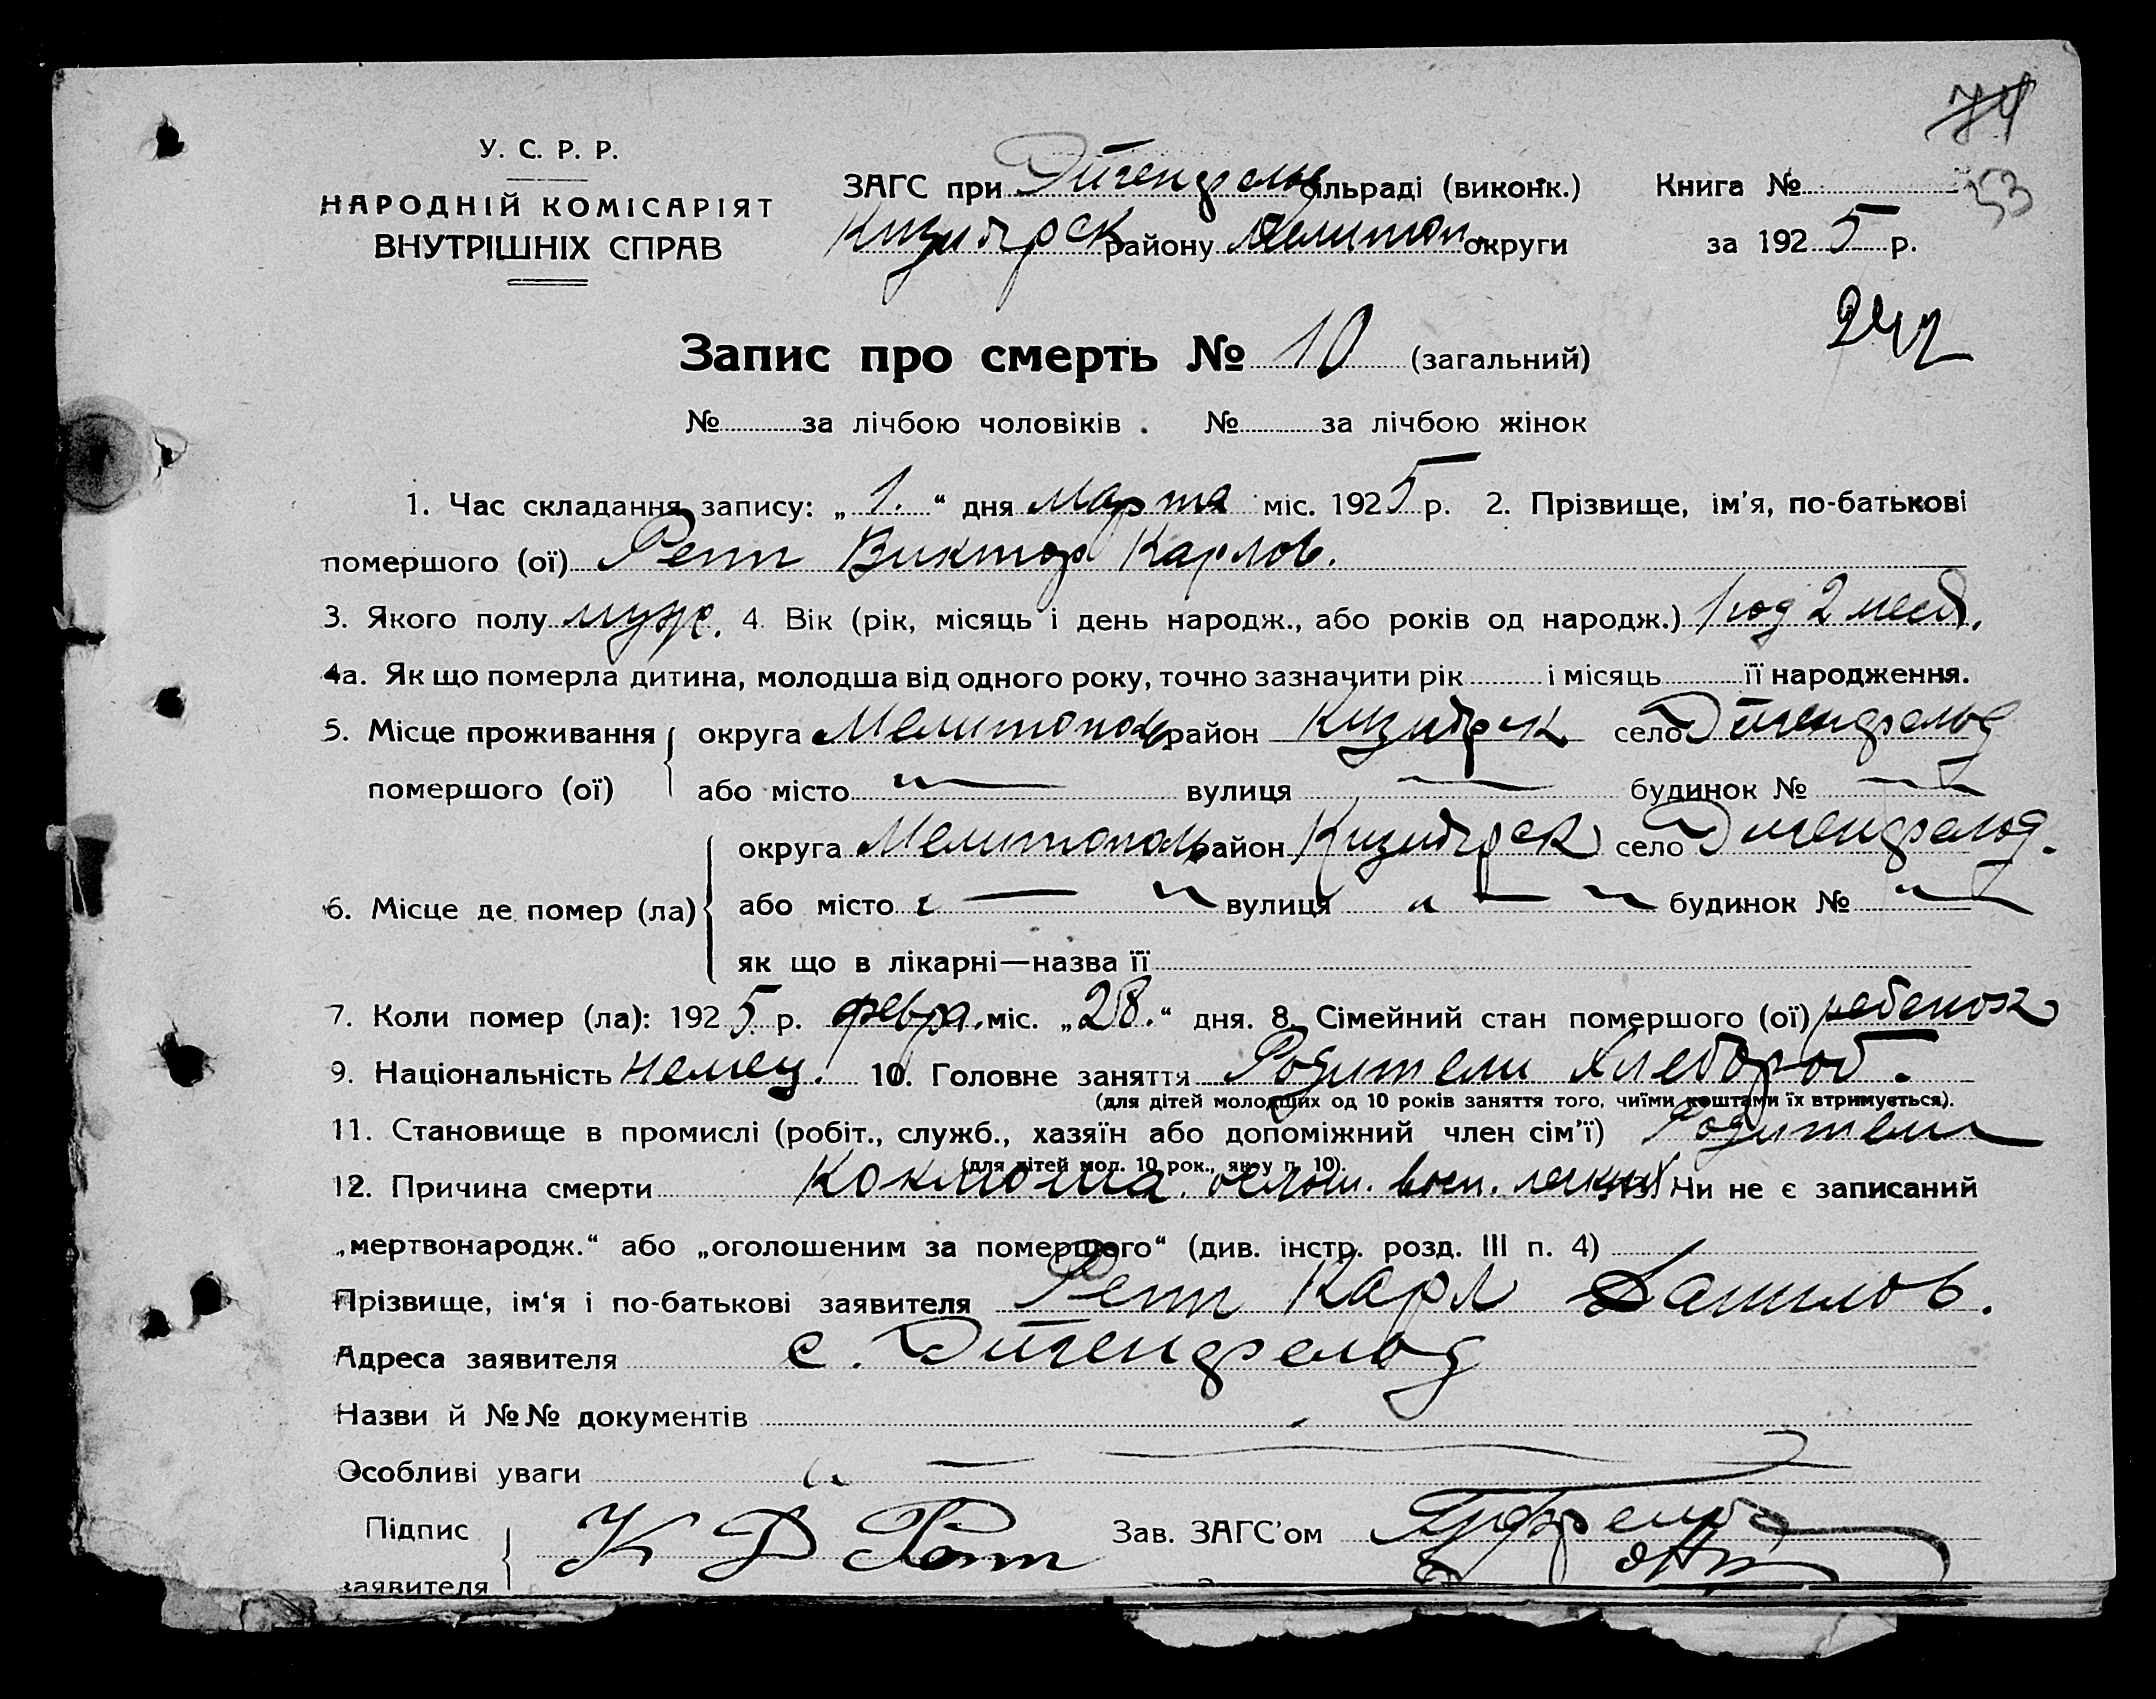 74
53
У. С. Р. Р.
НАРОДНІЙ КОМІСАРІЯТ
ВНУТРІШНІХ СПРАВ
ЗАГС при Эйгенфельд сільраді (виконк.) Книга №
району Мелитоп. округи за 1925 р.
242
Запис про смерть № 10 (загальний)
№ за лічбою чоловіків . № за лічбою жінок
1. Час складання запису: „1.“ дня марта міс. 1925 р. 2. Прізвище, ім'я, по-батькові
помершого (ої) Репп Виктор Карлов.
3. Якого полу муж. 4. Вік (рік, місяць і день народж., або років од народж.) 1 год 2 мес.
4а. Як що померла дитина, молодша від одного року, точно зазначити рік і місяць її народження.
5. Місце проживання округа Мелитополь район село Эйгенфельд
помершого (ої) або місто вулиця будинок №
округа Мелитополь район село Эйгенфельд.
6. Місце де помер (ла) або місто вулиця будинок №
як що в лікарні—назва її
7. Коли помер (ла): 1925 р. февра. міс. „28.“ дня. 8. Сімейний стан помершого (ої) ребенок
9. Національність немец. 10. Головне заняття Родители хлебороб.
(для дітей молодших од 10 років заняття того, чиїми коштами їх втримується).
11. Становище в промислі (робіт., служб., хазяїн або допоміжний член сім'ї) Родители
(для дітей мол. 10 рок., як у п. 10).
12. Причина смерти Коклюш ослож. восп. легких 13. Чи не є записаний
„мертвонародж.“ або „оголошеним за помершого“ (див. інстр. розд. III п. 4)
Прізвище, ім'я і по-батькові заявителя Репп Карл Данилов.
Адреса заявителя с. Эйгенфельд
Назви й №№ документів
Особливі уваги
Підпис К Д Репп Зав. ЗАГС'ом
заявителя